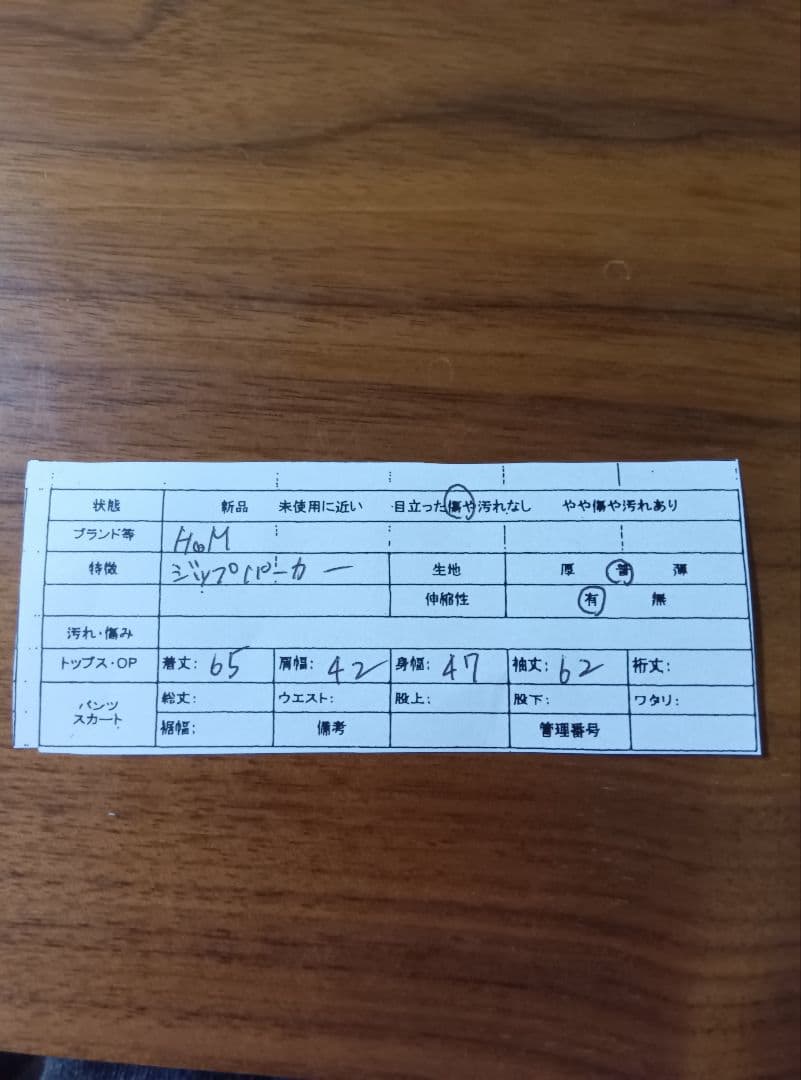 状態 新品 未使用に近い 目立った傷や汚れなし やや傷や汚れあり
ブランド等 H&M
特徴 ジップパーカー 生地 厚 普 薄
伸縮性 有 無
汚れ・傷み
トップス・OP 着丈: 65 肩幅: 42 身幅: 47 袖丈: 62 裄丈:
パンツ スカート 総丈: ウエスト: 股上: 股下: ワタリ:
裾幅: 備考 管理番号